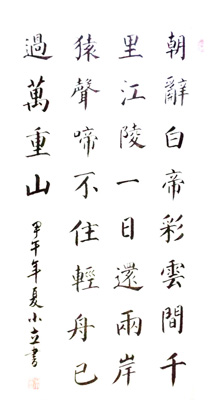 朝辭白帝彩雲間千
里江陵一日還兩岸
猿聲啼不住輕舟已
過萬重山
甲午年夏小立書